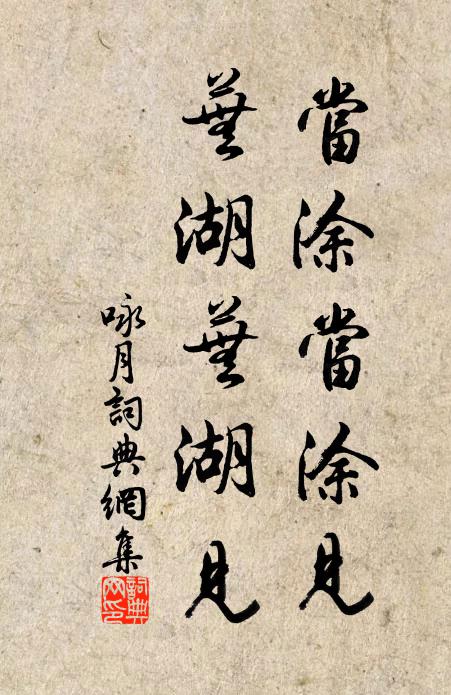 當涂當涂見
蕪湖蕪湖見
咏月詞典網集
詞典
网印